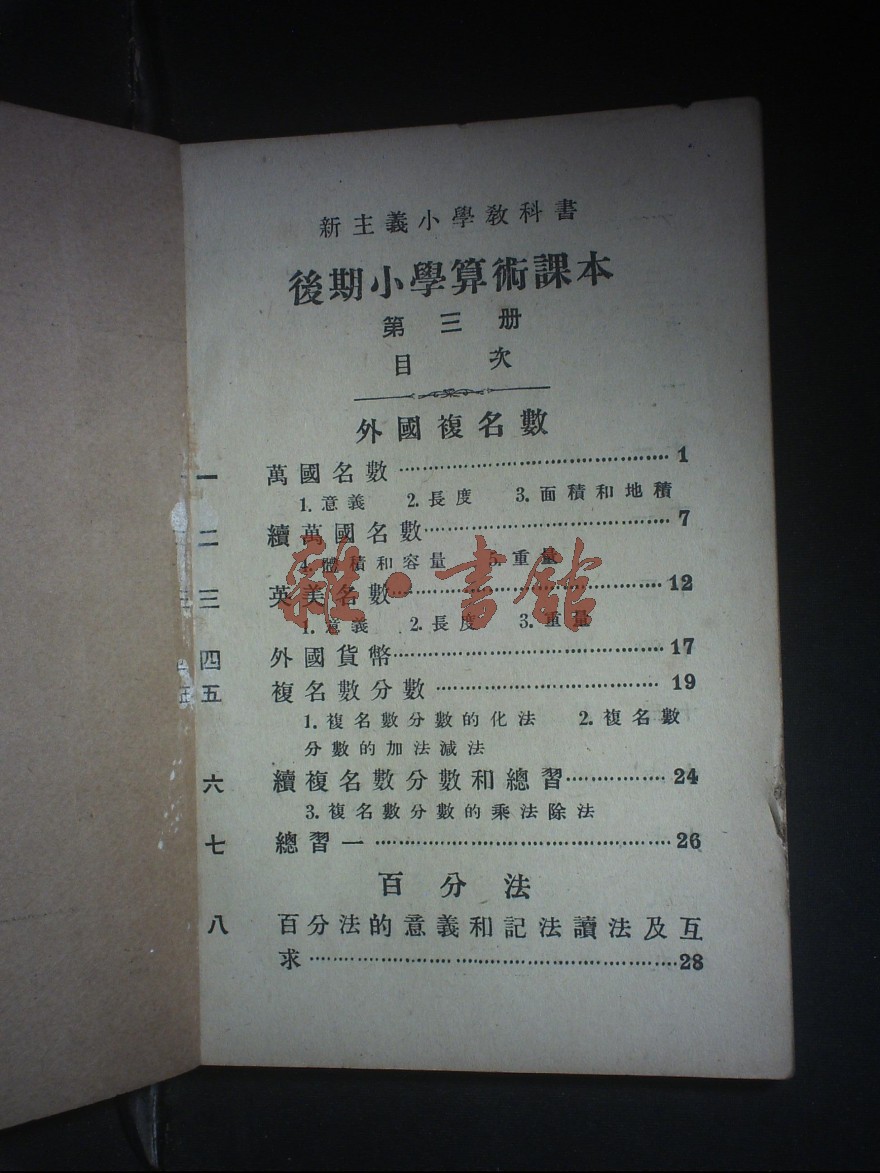 新主義小學教科書
後期小學算術課本
第三册
目次
外國複名數
一 萬國名數……1
1. 意義 2. 長度 3. 面積和地積
二 續萬國名數……7
4. 體積和容量 5. 重量
三 英美名數……12
1. 意義 2. 長度 3. 重量
四 外國貨幣……17
五 複名數分數……19
1. 複名數分數的化法 2. 複名數
分數的加法減法
六 續複名數分數和總習……24
3. 複名數分數的乘法除法
七 總習一……26
百分法
八 百分法的意義和記法讀法及互
求……28
雜·書館